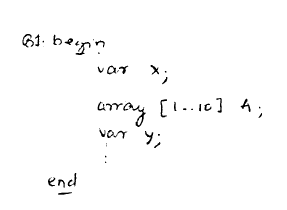 B1: begin
var x;
array [1..10] A;
var y;
:
end